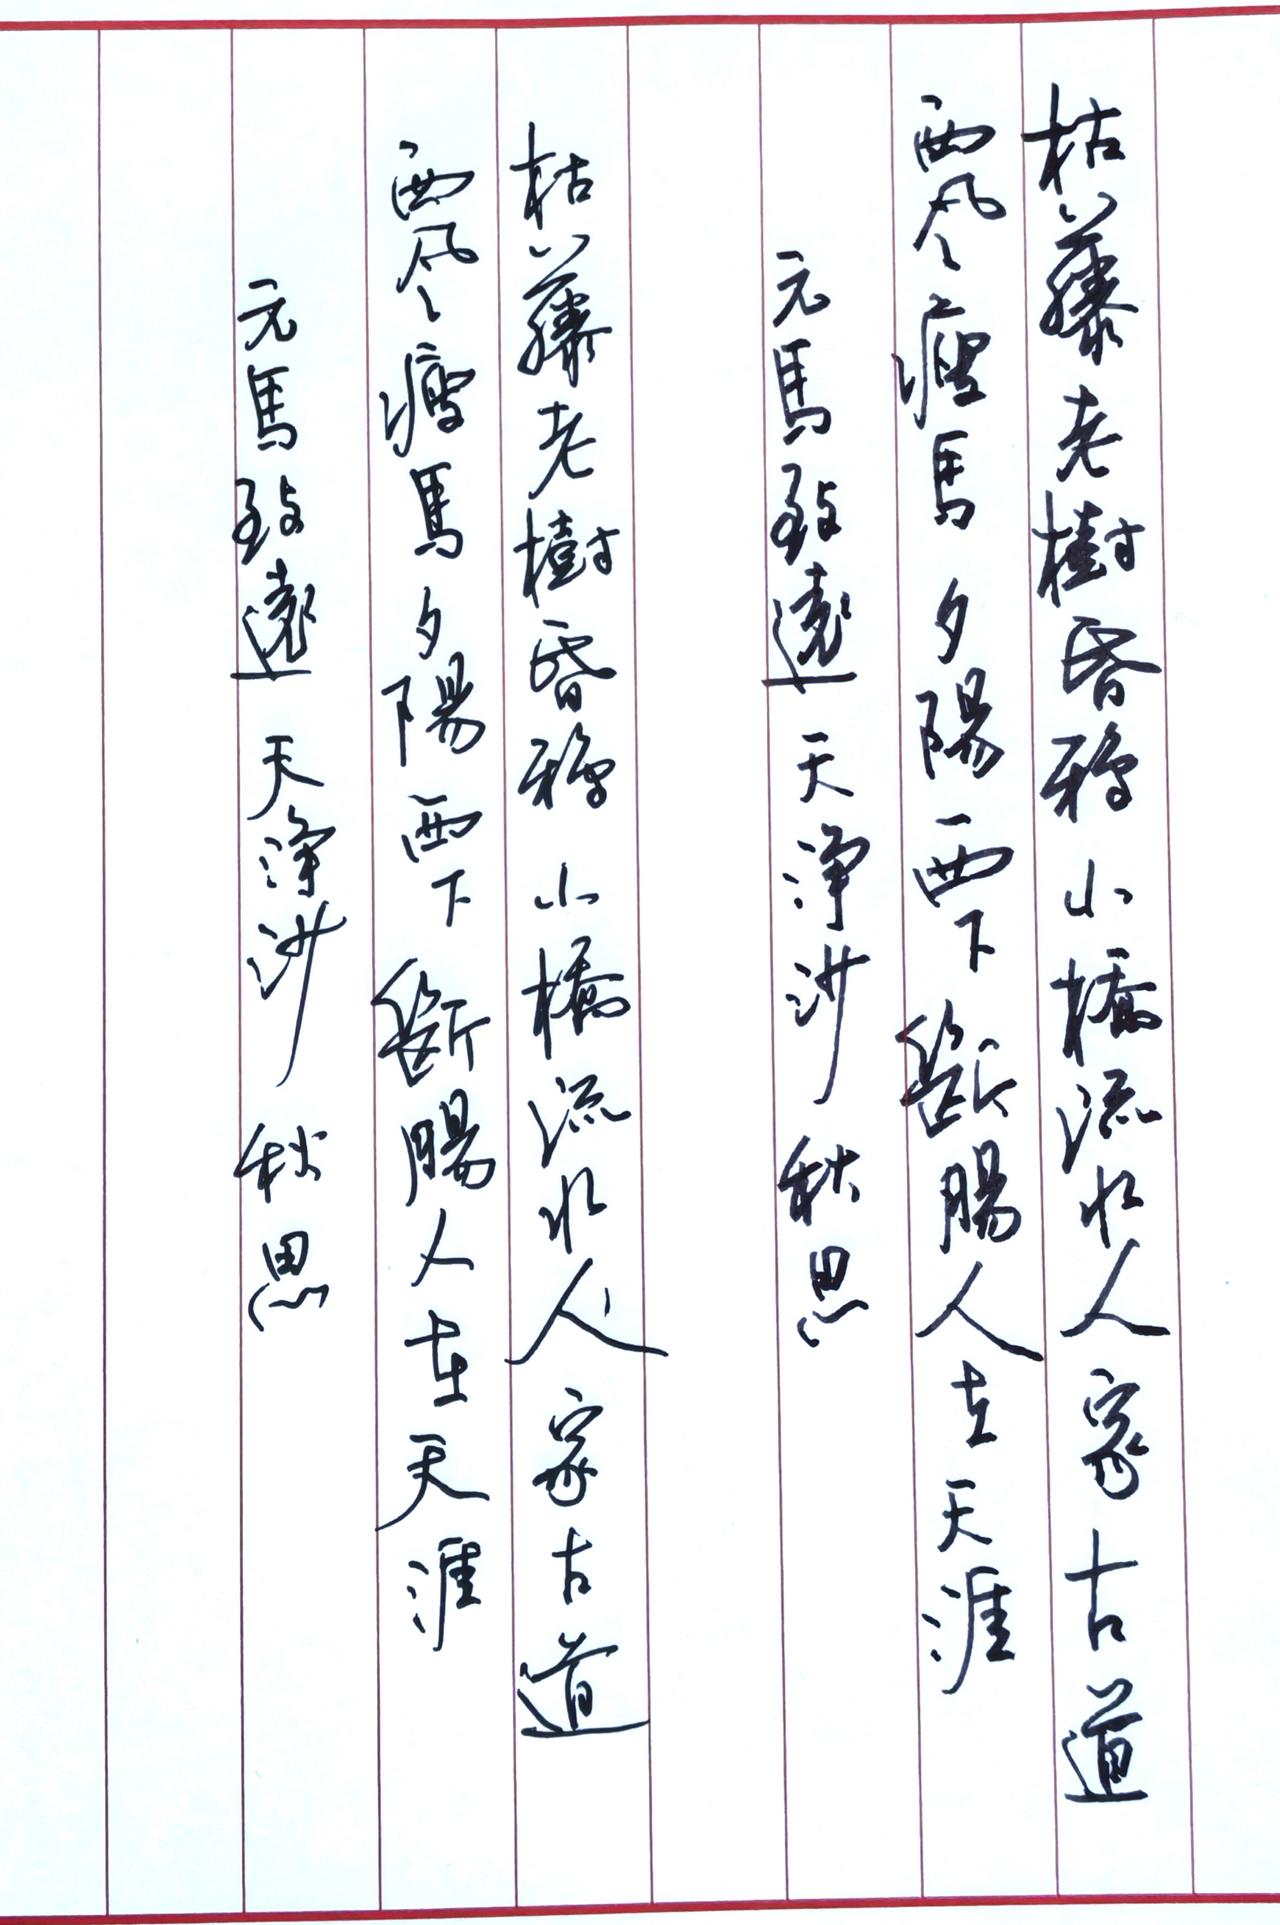 枯藤老樹昏鴉小橋流水人家古道
西風瘦馬夕陽西下斷腸人在天涯
元馬致遠天淨沙秋思
枯藤老樹昏鴉小橋流水人家古道
西風瘦馬夕陽西下斷腸人在天涯
元馬致遠天淨沙秋思